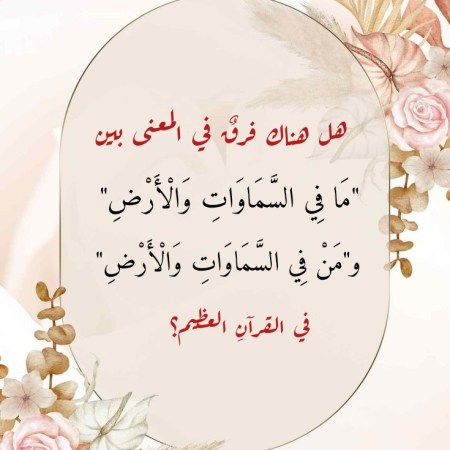 هل هناك فرقٌ في المعنى بين
"مَا فِي السَّمَاوَاتِ وَالْأَرْضِ"
و"مَنْ فِي السَّمَاوَاتِ وَالْأَرْضِ"
في القرآنِ العظيم؟